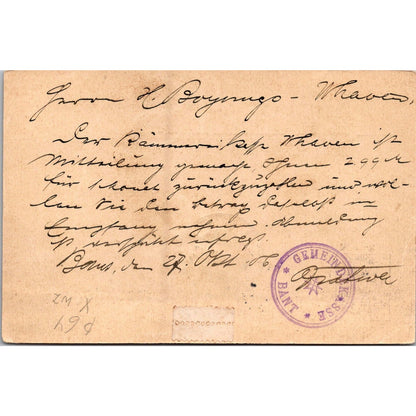 Herrn H. Boyungs - Whaven.
Der Kämmereikasse Whaven ist
Mitteilung gemacht Ihnen 2,99 M
für 1 Monat zurückzuzahlen und wol-
len Sie den Betrag daselbst in
Empfang nehmen. Abmeldung
ist verspätet erfolgt.
Bant, den 27. Okt. 06.
* GEMEINDEKASSE * BANT